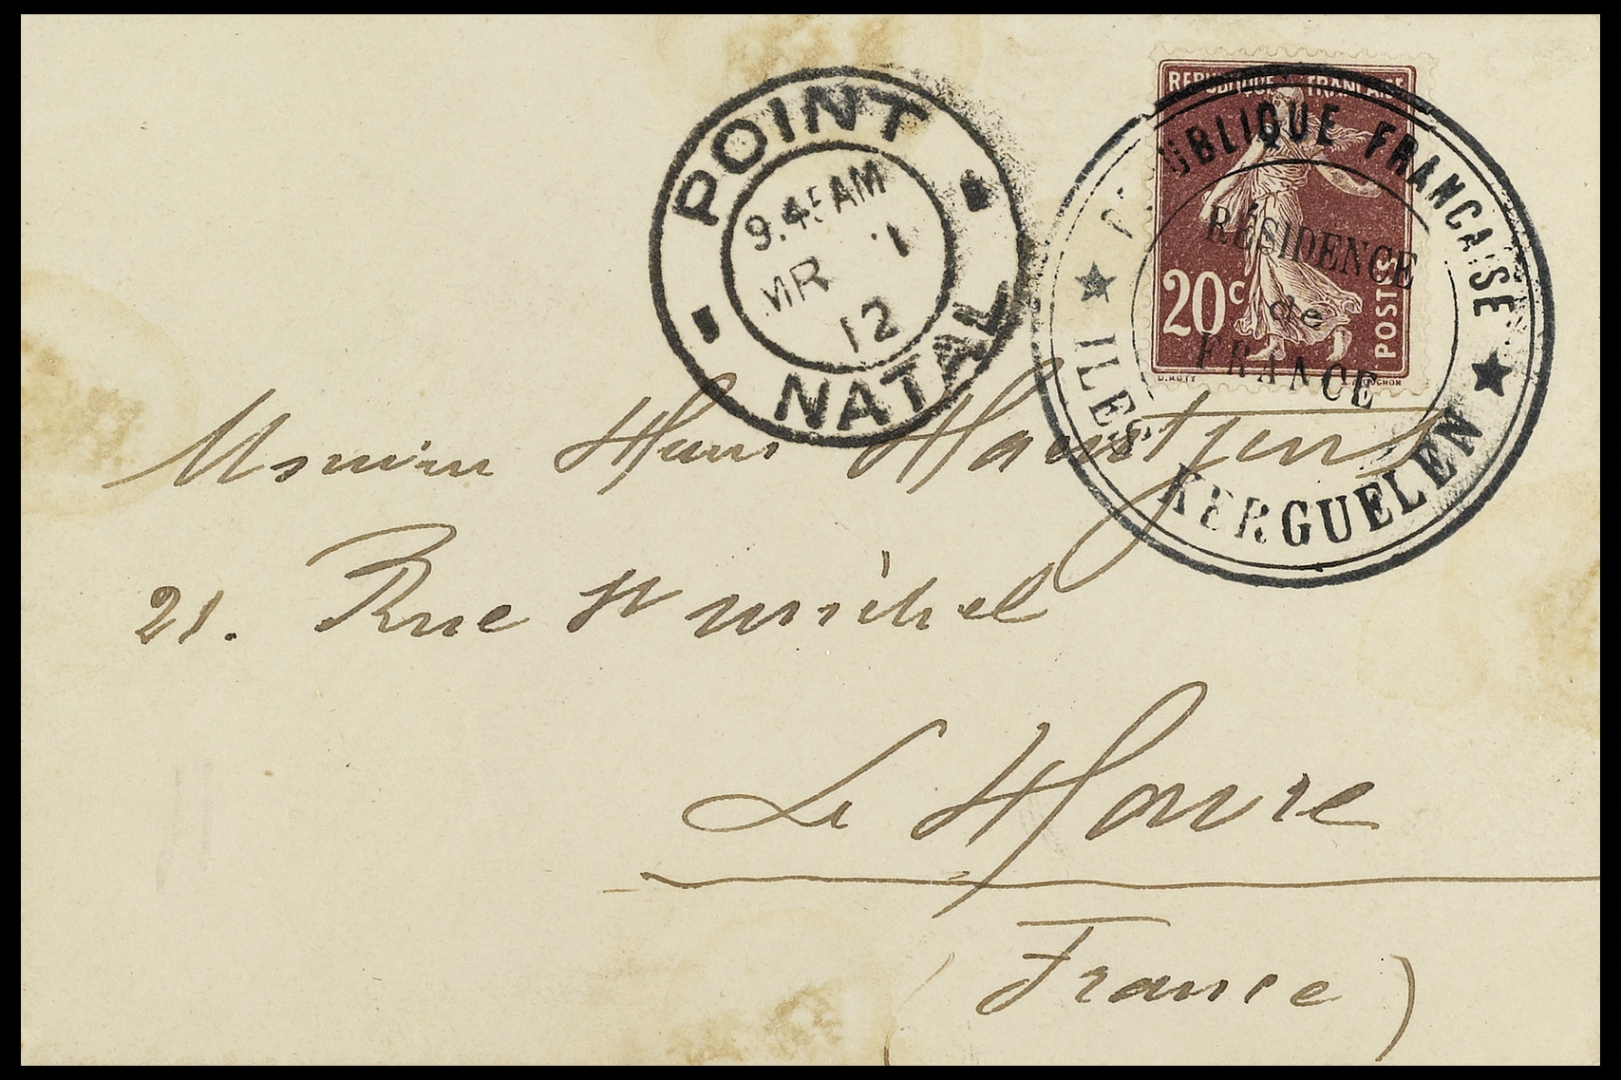 POINT
9.45 AM
MR 1
12
NATAL
REPUBLIQUE FRANÇAISE
20c
POSTES
RÉPUBLIQUE FRANÇAISE
RÉSIDENCE
de
FRANCE
ILES KERGUELEN
Monsieur Hans
21. Rue St Michel
Le Havre
(France)